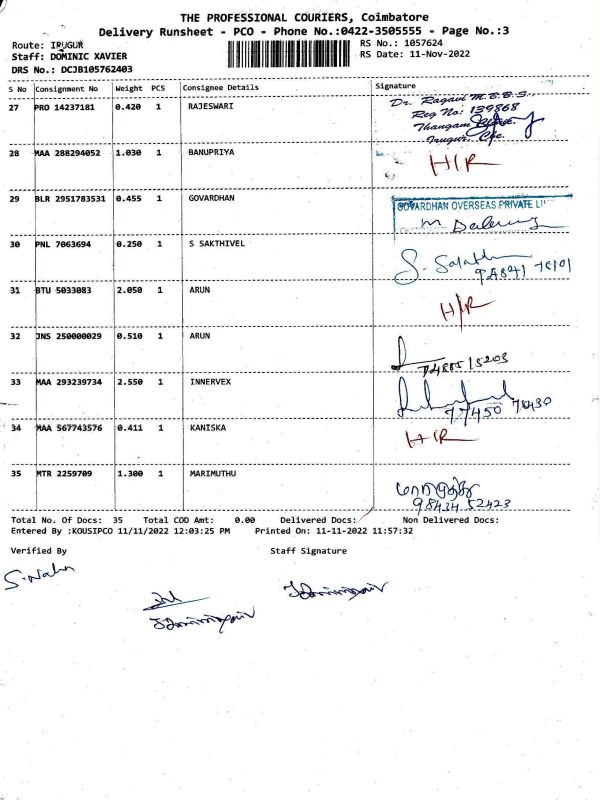 THE PROFESSIONAL COURIERS, Coimbatore
Delivery Runsheet - PCO - Phone No.:0422-3505555 - Page No.:3
Route: IRUGUR RS No.: 1057624
Staff: DOMINIC XAVIER RS Date: 11-Nov-2022
DRS No.: DCJB105762403
S No Consignment No Weight PCS Consignee Details Signature
27 PRO 14237181 0.420 1 RAJESWARI
Dr. Ragavi M.B.B.S.,
Reg No: 139868
Thangam
Irugur, Cbe.
28 MAA 288294052 1.030 1 BANUPRIYA H/R
29 BLR 2951783531 0.455 1 GOVARDHAN GOVARDHAN OVERSEAS PRIVATE LI
30 PNL 7063694 0.250 1 S SAKTHIVEL
31 BTU 5033083 2.050 1 ARUN H/R
32 JNS 250000029 0.510 1 ARUN
33 MAA 293239734 2.550 1 INNERVEX
77450 78430
34 MAA 567743576 0.411 1 KANISKA H/R
35 MTR 2259709 1.300 1 MARIMUTHU
98434 52423
Total No. Of Docs: 35 Total COD Amt: 0.00 Delivered Docs: Non Delivered Docs:
Entered By :KOUSIPCO 11/11/2022 12:03:25 PM Printed On: 11-11-2022 11:57:32
Verified By Staff Signature